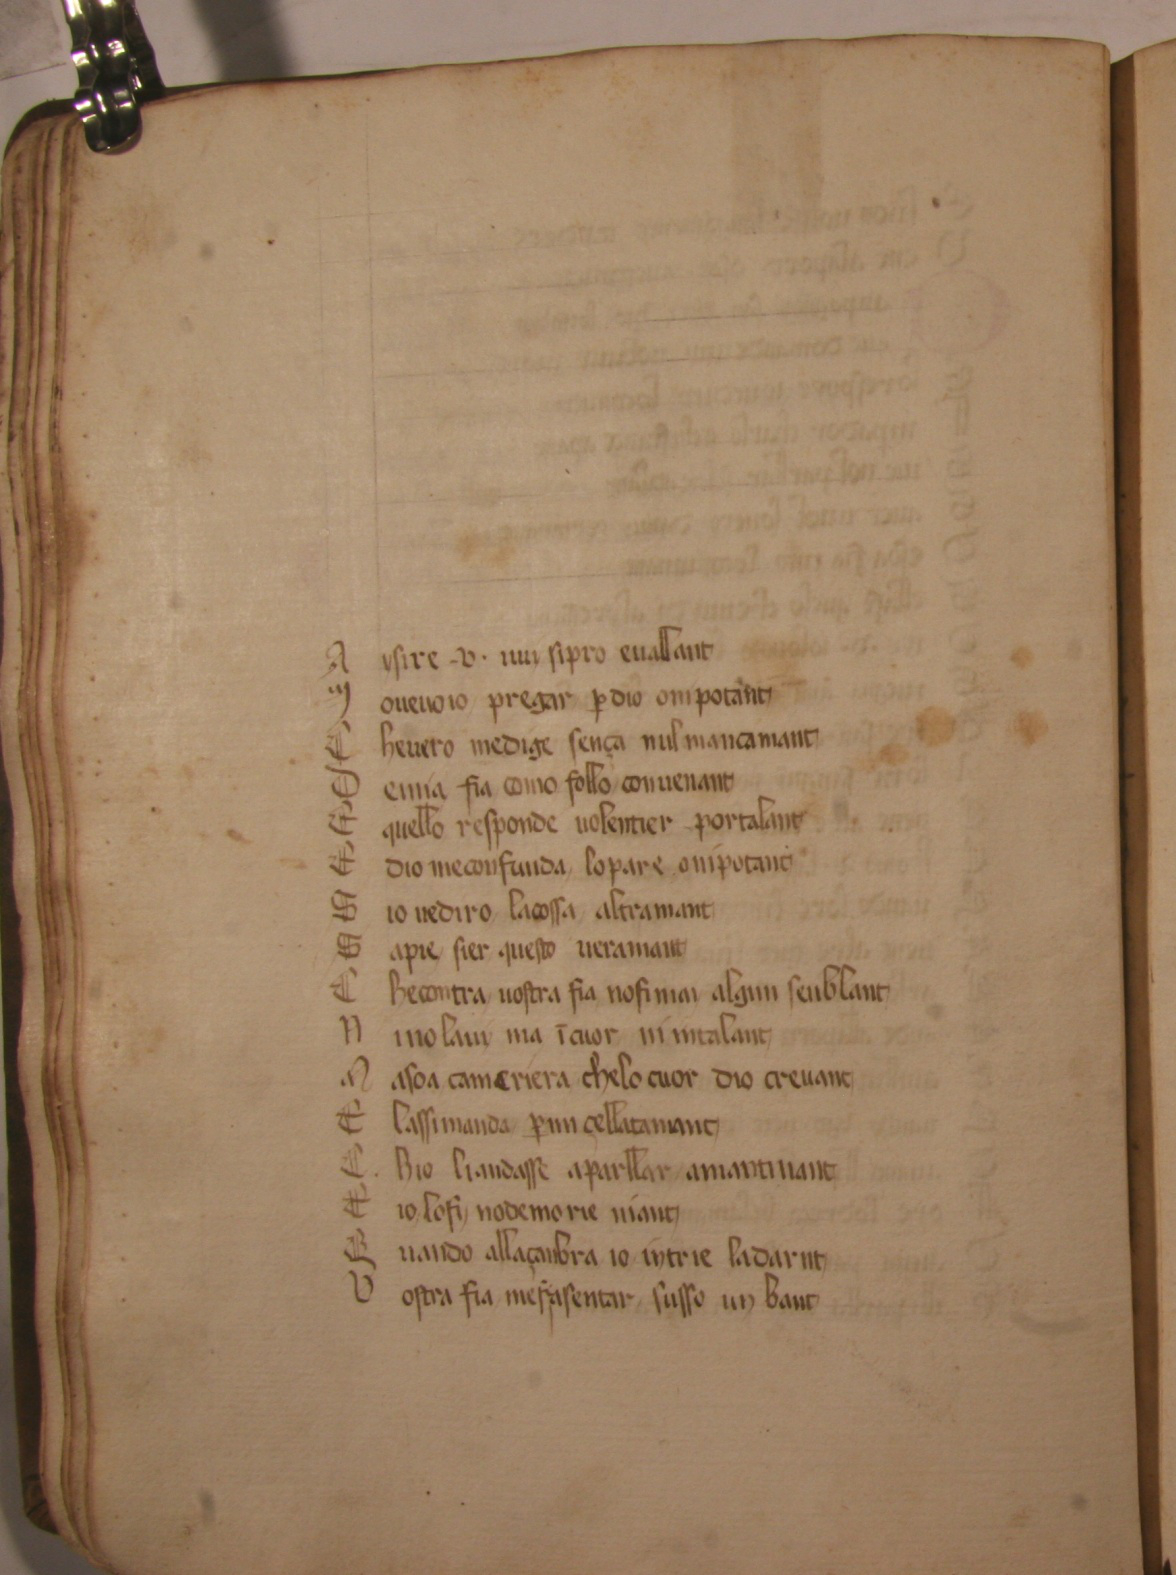 A vsire .v. uu sipro euallant
M oueuoio pregar ꝑ dio onipotant
C heuero medige sença nul mancamant
D euua fia como follo conuenant
E quello responde uolentier portalant
E dio meconfunda lo pare onipotant
E io uediro lacossa altramant
S apie sier questo ueramant
C hecontra uostra fia nofi mai algun senblant
N ino laui ma ĩ cuor ni intalant
M asoa cameriera chelo cuor dio creuant
E lassimanda ꝑ un çellatamant
C hio liandasse aparllar amantinant
E io lofi nodemorie niant
Q uando allaçanbra io intrie ladarnt
V ostra fia mefasentar susso un bant